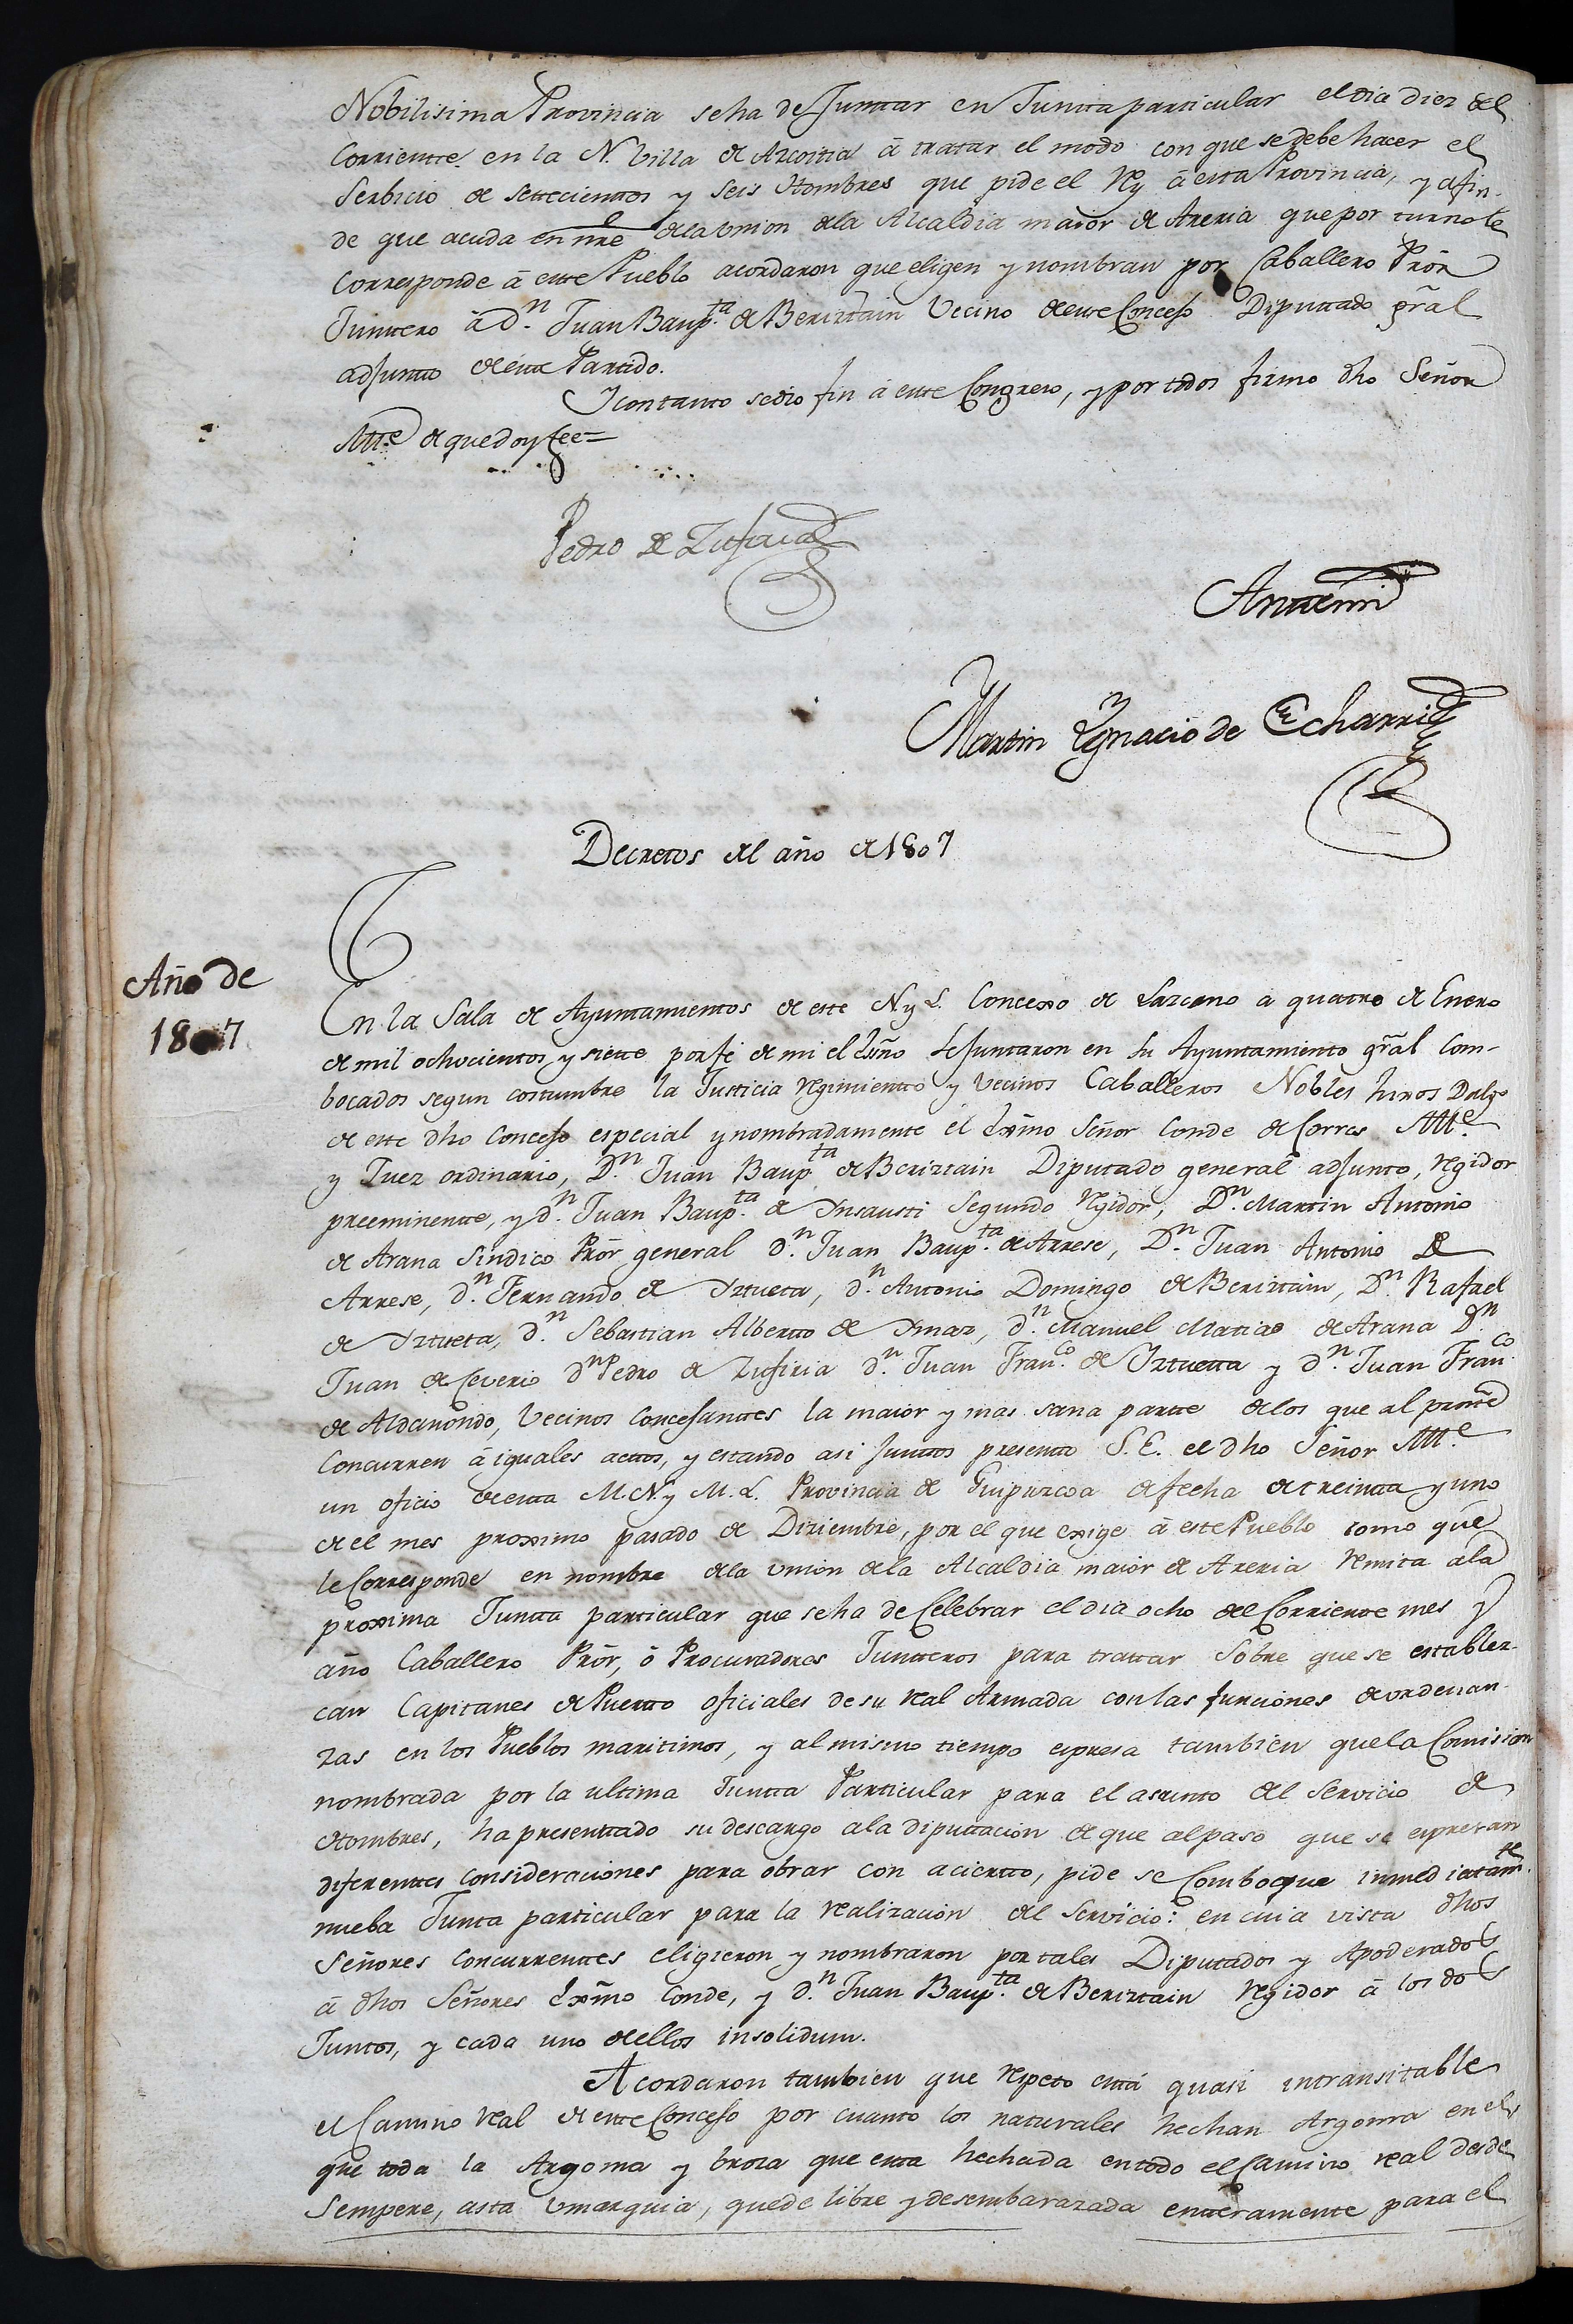 Nobilisima Provincia se ha de Junttar en Juntta particular el dia diez del
Corriente en la N. Villa de Azcoitia à tratar el modo con que se debe hacer el
Serbicio de settecienttos y seis Hombres que pide el Rey à esta Provincia, y a fin
de que acuda en nre de la Union de la Alcaldia maior de Areria que por turno le
Corresponde à este Pueblo acordaron que eligen y nombran por Caballero Prõr
Junttero à Dn. Juan Baupta. de Beriztain Vecino de este Concejo Diputtado grãl
adjuntto de estte Partido.
Y con tanto se dio fin à este Congreso, y por todos firmo dho Señor
Alle. de que doy fee=
Pedro de Zufiria
Antte mi
Martin Ygnacio de Echarri
Decretos del año de 1807
Año de
1807
En la Sala de Ayuntamientos de este N. y L. Concexo de Lazcano a quatro de Enero
de mil ochocientos y siette por fe de mi el Esño se Juntaron en su Ayuntamiento grãl Com-
bocados segun costumbre la Justicia regimientto y Vecinos Caballeros Nobles hixos Dalgo
de este dho Concejo especial y nombradamente el Exmo Señor Conde de Corres Alle.
y Juez ordinario, Dn. Juan Baupta de Beriztain Diputado general adjunto, regidor
preeminentte, y dn. Juan Baupta. de Ynsausti Segundo regidor, Dn. Martin Antonio
de Arana Sindico Prõr general dn. Juan Baupta. de Arrese, Dn. Juan Antonio de
Arrese, dn. Fernando de Yztueta, dn. Antonio Domingo de Beriztain, Dn. Rafael
de Yztueta, dn. Sebastian Albertto de Ymaz, dn. Manuel Matias de Arana Dn
Juan de Ceverio dn Pedro de Zufiria dn. Juan Franco. de Yztuetta y dn. Juan Franco.
de Aldanondo, Vecinos Concejanttes la maior y mas sana partte de los que al pnte
Concurren à iguales acttos, y estando asi Junttos presentto S.E. el dho Señor Alle.
un oficio de esta M.N. y M.L. Provincia de Guipuzcoa de fecha de treintta y uno
de el mes proximo pasado de Diziembre, por el que exige à este Pueblo como que
le Corresponde en nombre de la Union de la Alcaldia maior de Areria remita a la
proxima Juntta particular que se ha de Celebrar el dia ocho del Corriente mes y
año Caballero Prõr, ò Procuradores Juntteros para trattar Sobre que se establez-
can Capitanes de Puertto oficiales de su real Armada con las funciones de ordenan-
zas en los Pueblos maritimos, y al mismo tiempo expresa tambien que la Comision
nombrada por la ultima Juntta Particular para el asunto del Servicio de
Hombres, ha presenttado su descargo a la diputtacion de que al paso que se expresan
diferenttes Consideraciones para obrar con aciertto, pide se Comboque inmediatamte.
nueba Junta particular para la realizacion del Servicio: en cuia vista dhos
Señores Concurrenttes eligieron y nombraron por tales Diputados y Apoderados
à dhos Señores Exmo Conde, y dn. Juan Baupta. de Beriztain regidor à los dos
Juntos, y cada uno de ellos insolidum.
Acordaron tambien que respeto està quasi intransitable
el Camino real de este Concejo por cuanto los naturales hechan Argoma en el,
que toda la Argoma y broza que esta hechada en todo el Camino real desde
Sempere, asta Umarguia, quede libre y desembarazada entteramente para el